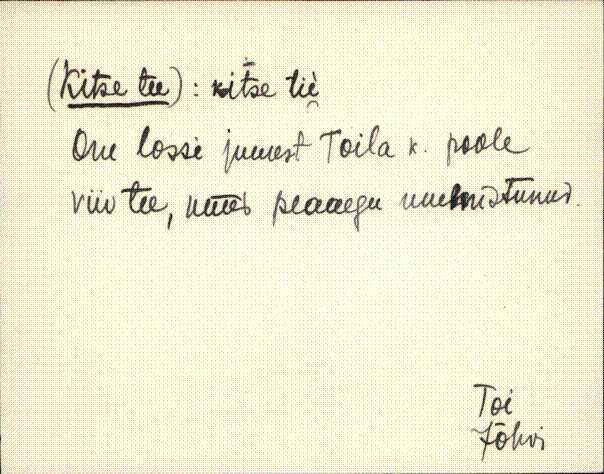 (Kitse tee) : kitse tiè
On lossi juurest Toila k. poole
viiv tee, nüüd peaaegu unustunud.
Toi
Jõhvi